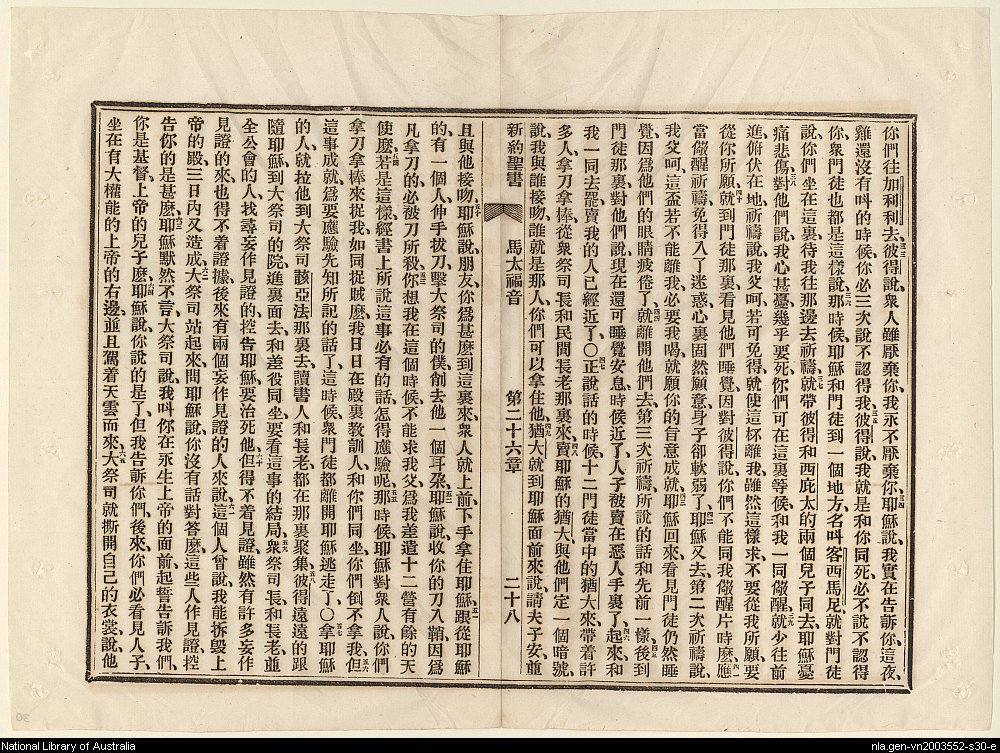 你們往加利利去、彼得說、衆人雖厭棄你、我永不厭棄你、耶穌說、我實在告訴你、這夜、
雞還沒有叫的時候、你必三次說不認得我、彼得說、我就是和你同死、必不說不認得
你、衆門徒也都是這樣說、那時候耶穌和門徒到一個地方、名叫客西馬尼、就對門徒
說、你們坐在這裏、待我往那邊去祈禱、就帶彼得和西庇太的兩個兒子同去、耶穌憂
痛悲傷、對他們說、我心甚憂、幾乎要死、你們可在這裏等候、和我一同儆醒、就少往前
進、俯伏在地、祈禱說、我父呵、若可免得、就使這杯離我、雖然這樣、求不要從我所願、要
從你所願、就到門徒那裏、看見他們睡覺、因對彼得說、你們不能同我儆醒片時麽、應
當儆醒祈禱、免得入了迷惑、心裏固然願意、身子卻軟弱了、耶穌又去、第二次祈禱說、
我父呵、這盃若不能離我、必要我喝、就願你的旨意成就、耶穌回來、看見門徒仍然睡
覺、因爲他們的眼睛疲倦了、就離開他們去、第三次祈禱、所說的話和先前一樣、後到
門徒那裏、對他們說、現在還可睡覺安息、時候近了、人子被賣在惡人手裏了、起來、和
我一同去罷、賣我的人已經近了、○正說話的時候、十二門徒當中的猶大來、帶着許
多人、拿刀拿棒、從衆祭司長和民間長老那裏來、賣耶穌的猶大、與他們定一個暗號、
說、我與誰接吻、誰就是那人、你們可以拿住他、猶大就到耶穌面前來、說、請夫子安、重
新約聖書 馬太福音 第二十六章 二十八
且與他接吻、耶穌說、朋友、你爲甚麽到這裏來、衆人就上前、下手拿住耶穌、跟從耶穌
的、有一個人伸手拔刀、擊大祭司的僕、削去他一個耳朶、耶穌說、收你的刀入鞘、因爲
凡拿刀的、必被刀所殺、你想我在這個時候、不能求我父、爲我差遣十二營有餘的天
使麽、若是這樣、經書上所說這事必有的話、怎得應驗呢、那時候耶穌對衆人說、你們
拿刀拿棒來捉我、如同捉賊麽、我日日在殿裏敎訓人、和你們同坐、你們倒不拿我、但
這事成就、爲要應驗先知所記的話了、這時候、衆門徒都離開耶穌逃走了、○拿耶穌
的人、就拉他到大祭司該亞法那裏去、讀書人和長老都在那裏聚集、彼得遠遠的跟
隨耶穌、到大祭司的院、進裏面去、和差役同坐、要看這事的結局、衆祭司長和長老、並
全公會的人、找尋妄作見證的、控告耶穌、要治死他、但得不着見證、雖然有許多妄作
見證的來、也得不着證據、後來有兩個妄作見證的人來、說、這個人曾說、我能拆毀上
帝的殿、三日內又造成、大祭司站起來、問耶穌說、你沒有話對答麽、這些人作見證、控
告你的是甚麽、耶穌默然不言、大祭司說、我叫你在永生上帝的面前起誓、告訴我們、
你是基督、上帝的兒子麽、耶穌說、你說的是了、但我告訴你們、後來你們必看見人子、
坐在有大權能的上帝的右邊、並且駕着天雲而來、大祭司就撕開自己的衣裳、說、他
National Library of Australia
nla.gen-vn2003552-s30-e